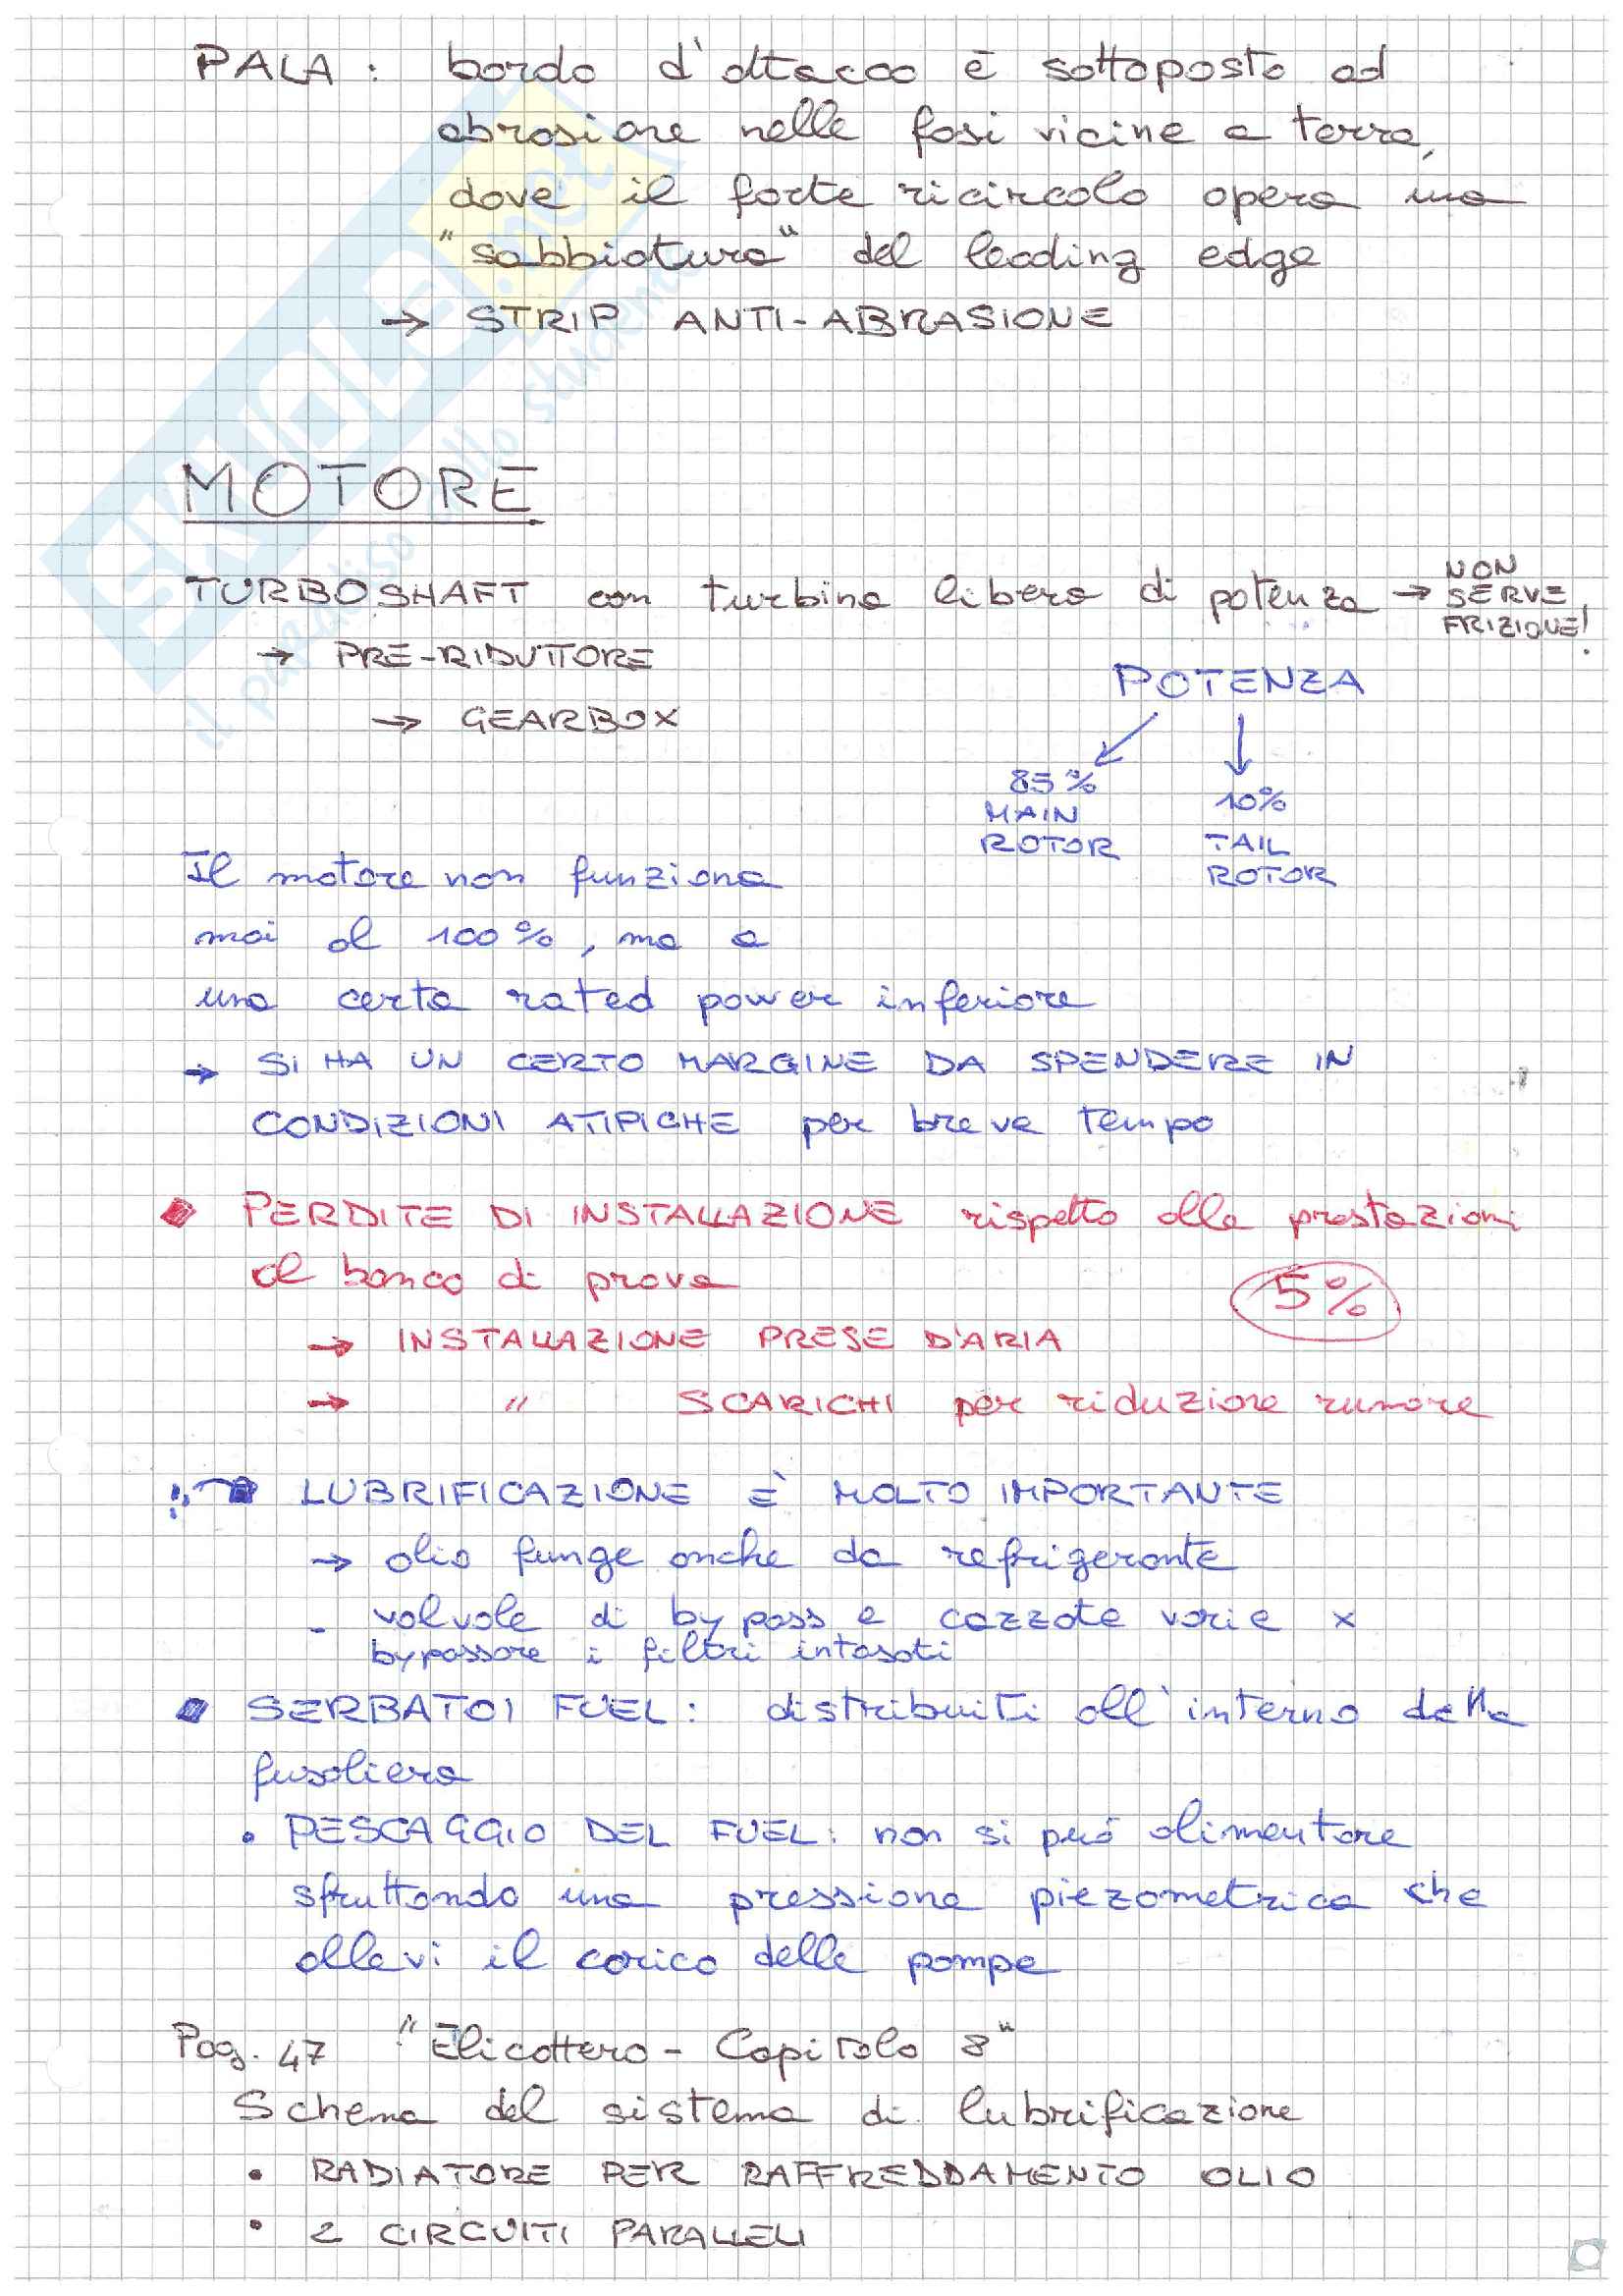 PALA : bordo d'attacco è sottoposto ad
abrasione nelle fasi vicine a terra,
dove il forte ricircolo opera una
"sabbiatura" del leading edge
→ STRIP ANTI-ABRASIONE
MOTORE
TURBOSHAFT con turbina libera di potenza → NON
SERVE
FRIZIONE!
→ PRE-RIDUTTORE
→ GEARBOX
POTENZA
85%
MAIN
ROTOR
10%
TAIL
ROTOR
Il motore non funziona
mai al 100%, ma a
una certa rated power inferiore
→ SI HA UN CERTO MARGINE DA SPENDERE IN
CONDIZIONI ATIPICHE per breve tempo
PERDITE DI INSTALLAZIONE rispetto alle prestazioni
al banco di prova
5%
→ INSTALLAZIONE PRESE D'ARIA
→ " SCARICHI per riduzione rumore
LUBRIFICAZIONE È MOLTO IMPORTANTE
→ olio funge anche da refrigerante
- valvole di bypass e cazzate varie x
bypassare i filtri intasati
SERBATOI FUEL : distribuiti all'interno della
fusoliera
• PESCAGGIO DEL FUEL : non si può alimentare
sfruttando una pressione piezometrica che
allevi il carico delle pompe
Pag. 47 "Elicottero - Capitolo 8"
Schema del sistema di lubrificazione
• RADIATORE PER RAFFREDDAMENTO OLIO
• 2 CIRCUITI PARALLELI
SKUOLA.net
il paradiso dello studente